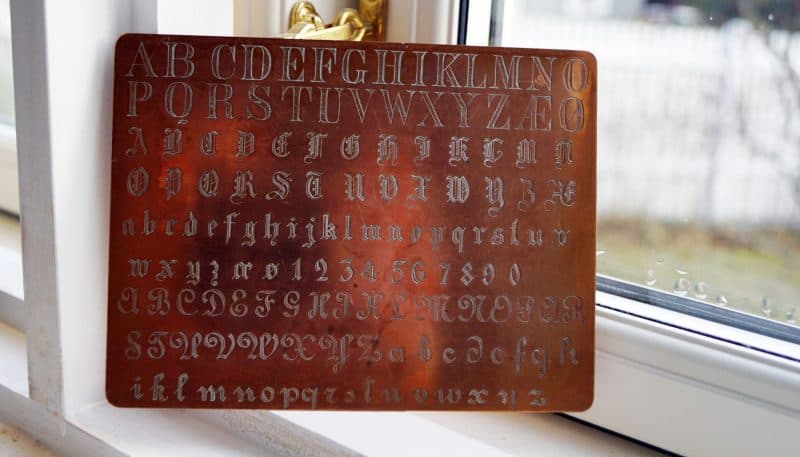 ABCDEFGHIJKLMNO
PQRSTUVWXYZÆØ
A B C D E F G H I K L M N
O P Q R S T U V X W Y Z Æ
abcdefghijklmnopqrstuv
wxyzæø1234567890
ABCDEFGHIKLMNOPQR
STUVWXYZabcdefgh
iklmnopqrstuvwxyz